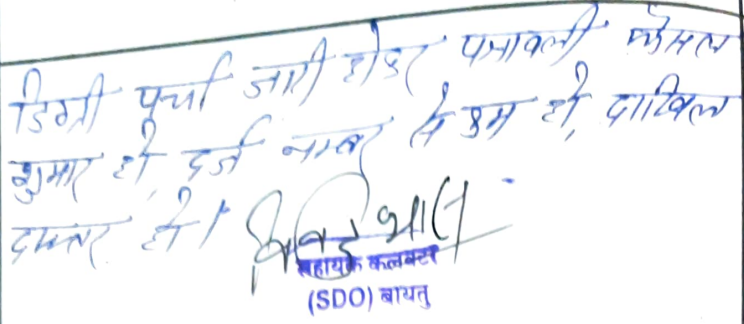 डिग्री पर्चा जारी होकर पत्रावली फैसल
शुमार हो, दर्ज नम्बर से कम हो, दाखिल
दफ्तर हो।
सहायक कलक्टर
(SDO) बायतु